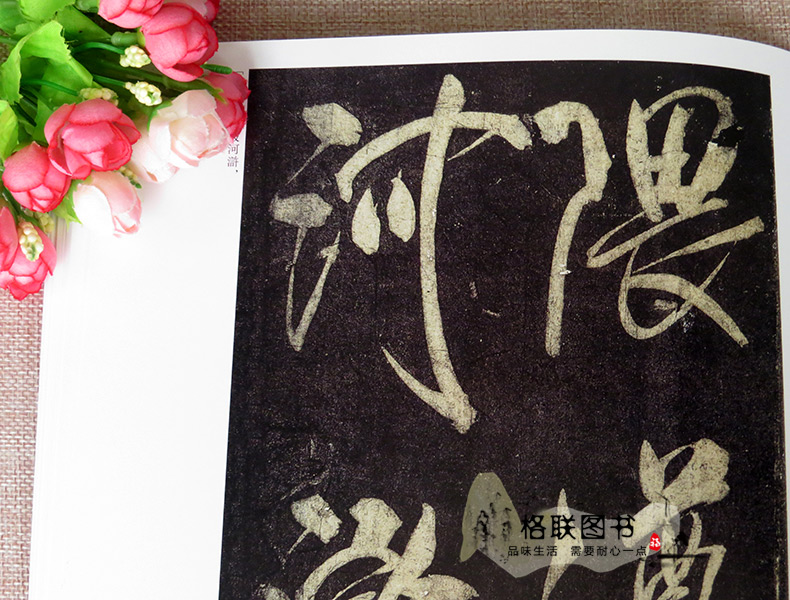 隈
河
河滸，
格联图书
品味生活 需要耐心一点